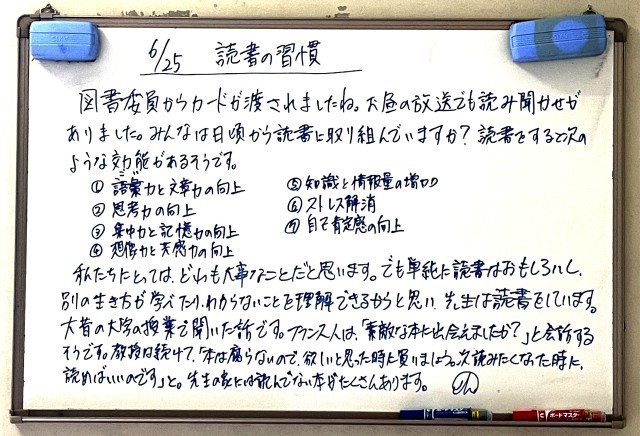 6/25 読書の習慣
図書委員からカードが渡されましたね。お昼の放送でも読み聞かせが
ありました。みんなは日頃から読書に取り組んでいますか？読書をすると次の
ような効能があるそうです。
① 語彙力と文章力の向上
② 思考力の向上
③ 集中力と記憶力の向上
④ 想像力と共感力の向上
⑤ 知識と情報量の増加
⑥ ストレス解消
⑦ 自己肯定感の向上
私たちにとっては、どれも大事なことだと思います。でも単純に読書はおもしろいし、
別の生き方が学べたり、わからないことを理解できるからと思い、先生は読書をしています。
大昔の大学の授業で聞いた話です。フランス人は、「素敵な本に出会えましたか？」と会話する
そうです。教授は続けて、「本は腐らないので、欲しいと思った時に買いましょう。次読みたくなった時に、
読めばいいのです」と。先生の家には読んでない本がたくさんあります。
ボードマスター